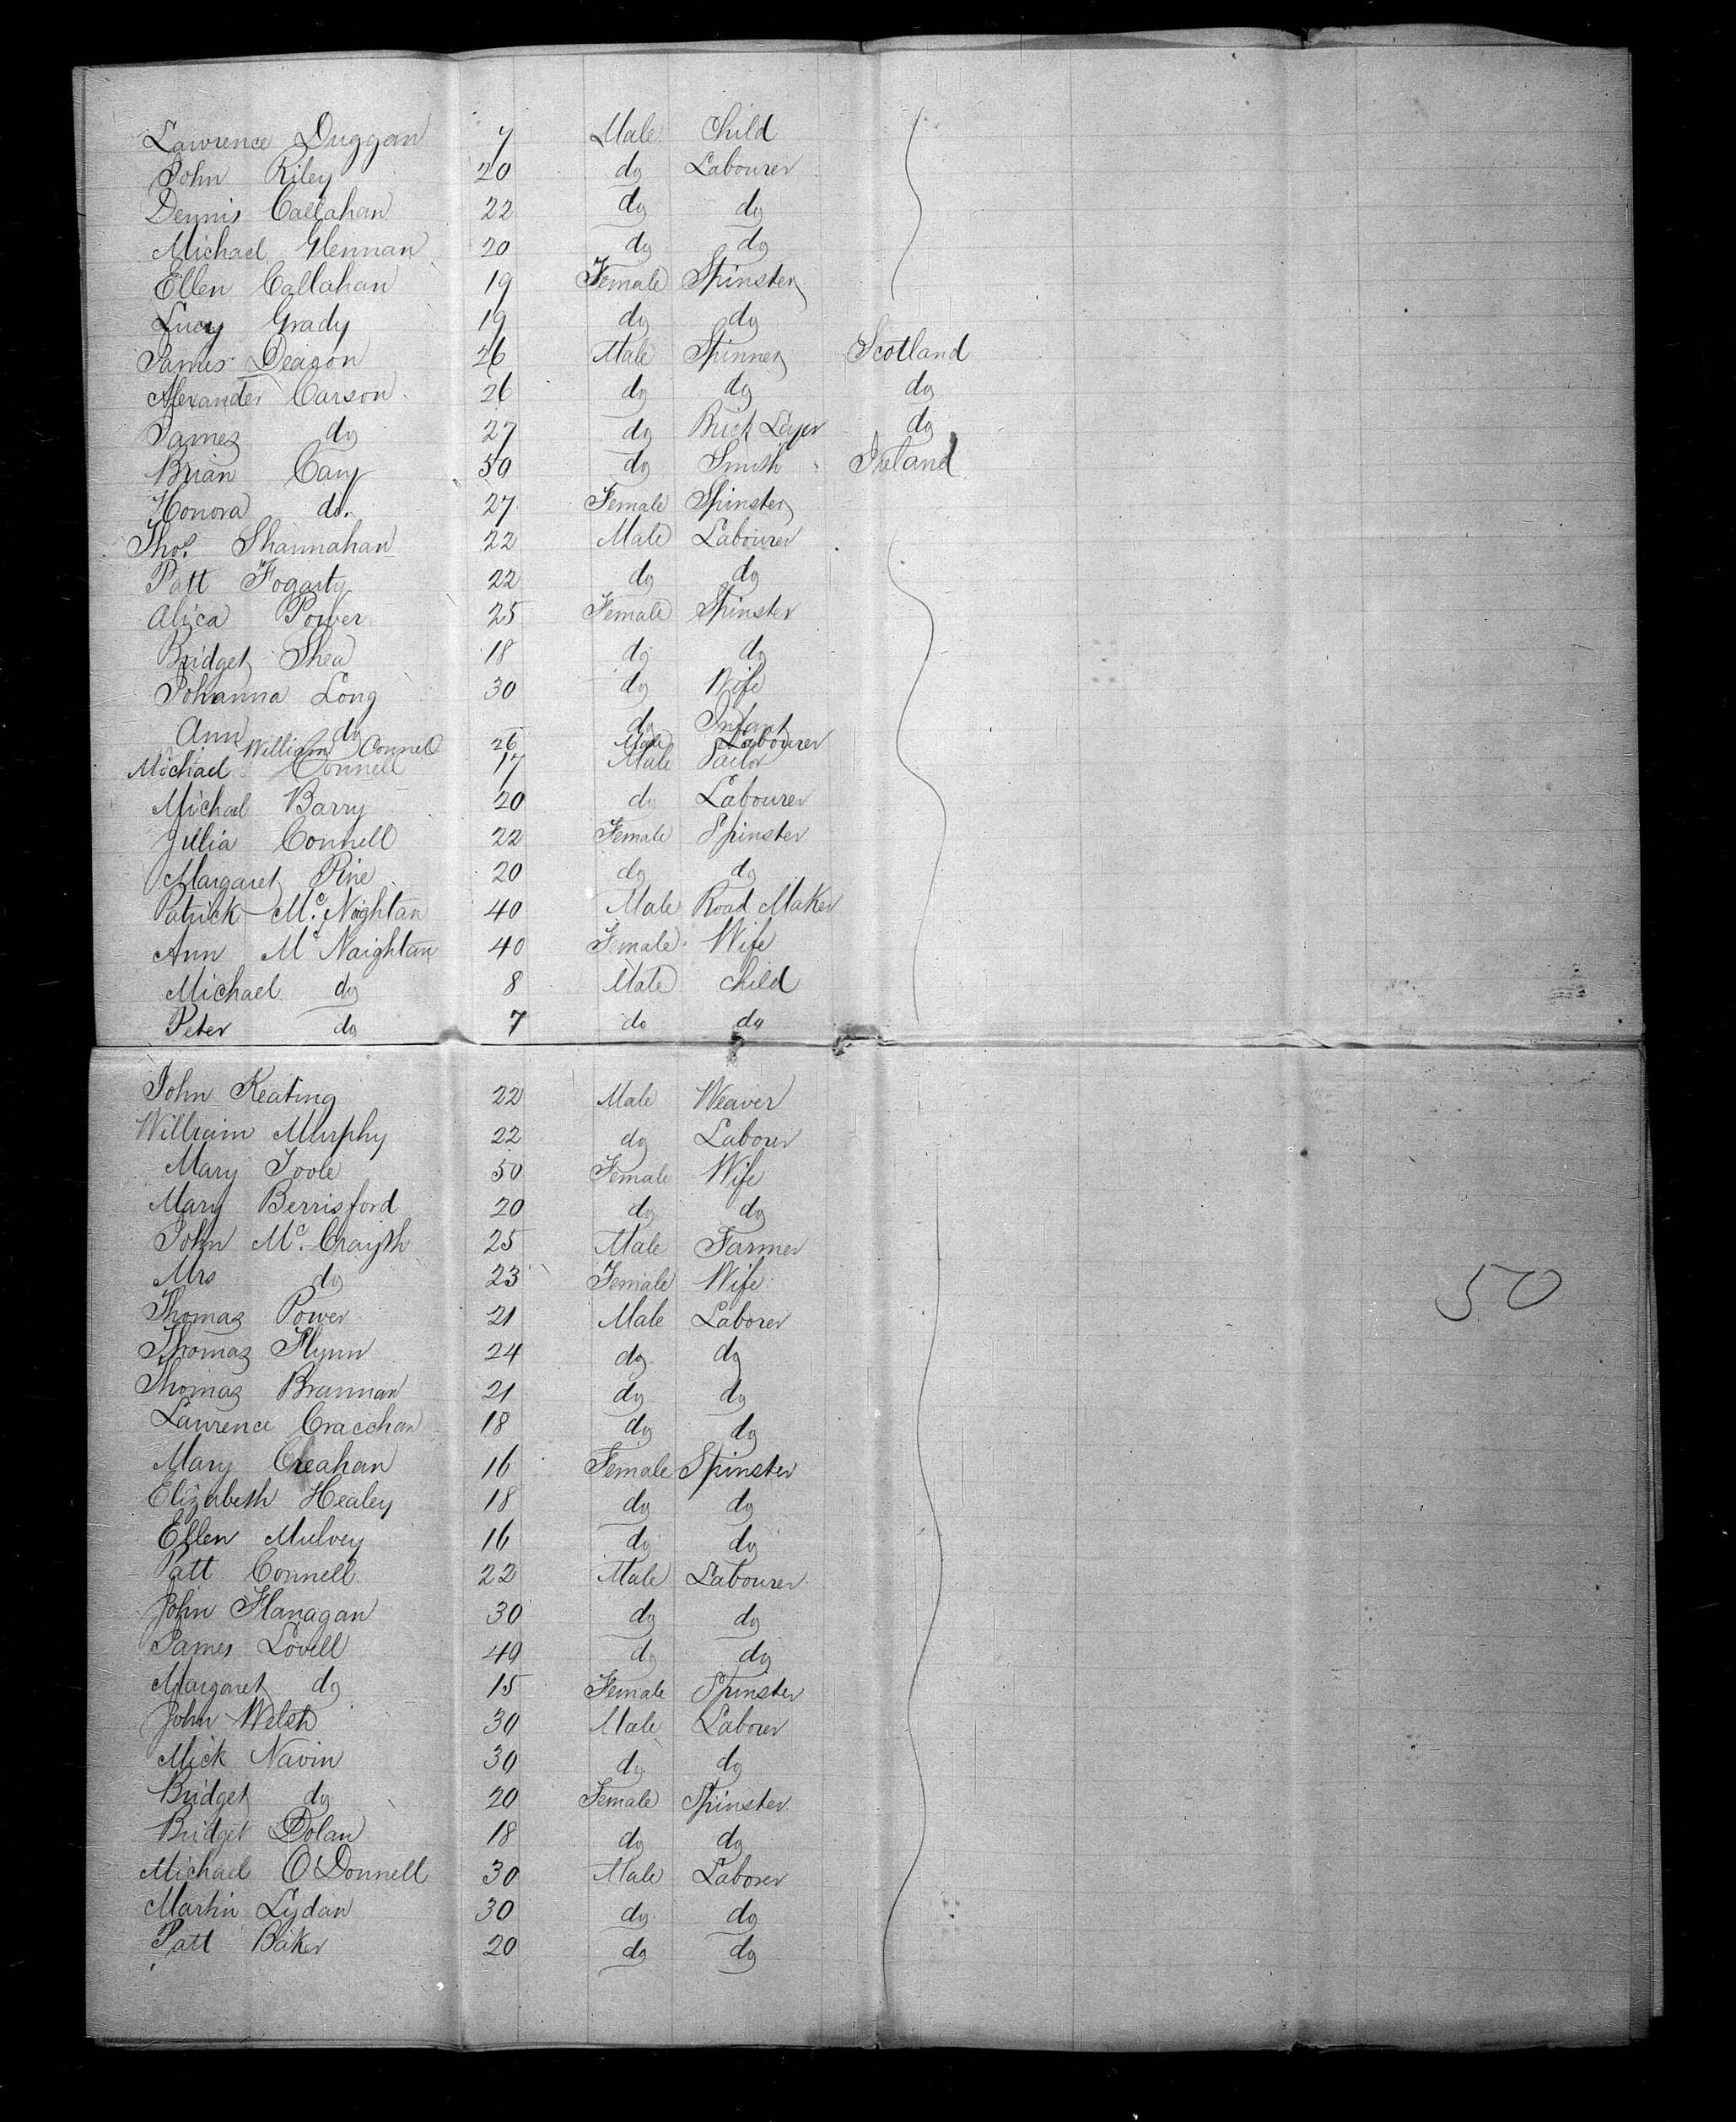 Lawrence Duggan 7 Male Child
John Riley 20 do Labourer
Dennis Callahan 22 do do
Michael Glennan 20 do do
Ellen Callahan 19 Female Spinster
Lucy Grady 19 do do
James Deacon 26 Male Spinner Scotland
Alexander Carson 26 do do do
James do 27 do Brick Layer do
Brian Cary 50 do Smith Ireland
Honora do. 27 Female Spinster
Thos. Shannahan 22 Male Labourer
Patt Fogarty 22 do do
Alica Power 25 Female Spinster
Bridget Shea 18 do do
Johanna Long 30 do Wife
Ann do do Infant
William Connel 26 Male Labourer
Michael Connell 17 Male Tailor
Michael Barry 20 do Labourer
Julia Connell 22 Female Spinster
Margaret Pine 20 do do
Patrick Mc. Noghtan 40 Male Road Maker
Ann Mc Naightan 40 Female Wife
Michael do 8 Male Child
Peter do 7 do do
John Keating 22 Male Weaver
William Murphy 22 do Laborer
Mary Toole 50 Female Wife
Mary Berrisford 20 do do
John Mc. Crayth 25 Male Farmer
Mrs do 23 Female Wife
50
Thomas Power 21 Male Laborer
Thomas Flynn 24 do do
Thomas Brannan 21 do do
Lawrence Cracchan 18 do do
Mary Creahan 16 Female Spinster
Elizabeth Healey 18 do do
Ellen Mulvey 16 do do
Patt Connell 22 Male Labourer
John Flanagan 30 do do
James Lovell 49 do do
Margaret do 15 Female Spinster
John Welsh 30 Male Laborer
Mick Navin 30 do do
Bridget do 20 Female Spinster
Bridget Dolan 18 do do
Michael O'Donnell 30 Male Laborer
Martin Lydan 30 do do
Patt Baker 20 do do